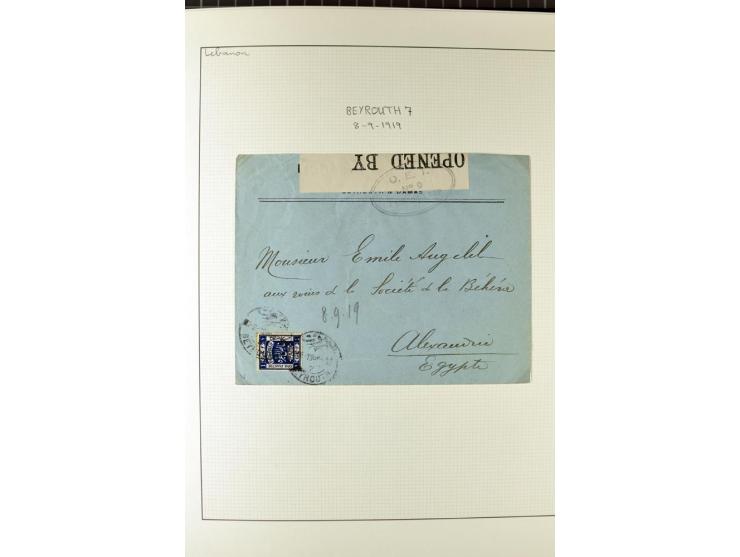 Lebanon
BEYROUTH 7
8-9-1919
OPENED BY
O. E. T.
Nº 9
Monsieur Emile
aux soins de la Société de la Béhéra
8.9.19
Alexandrie
Egypte
BEYROUTH
ONE PIASTRE